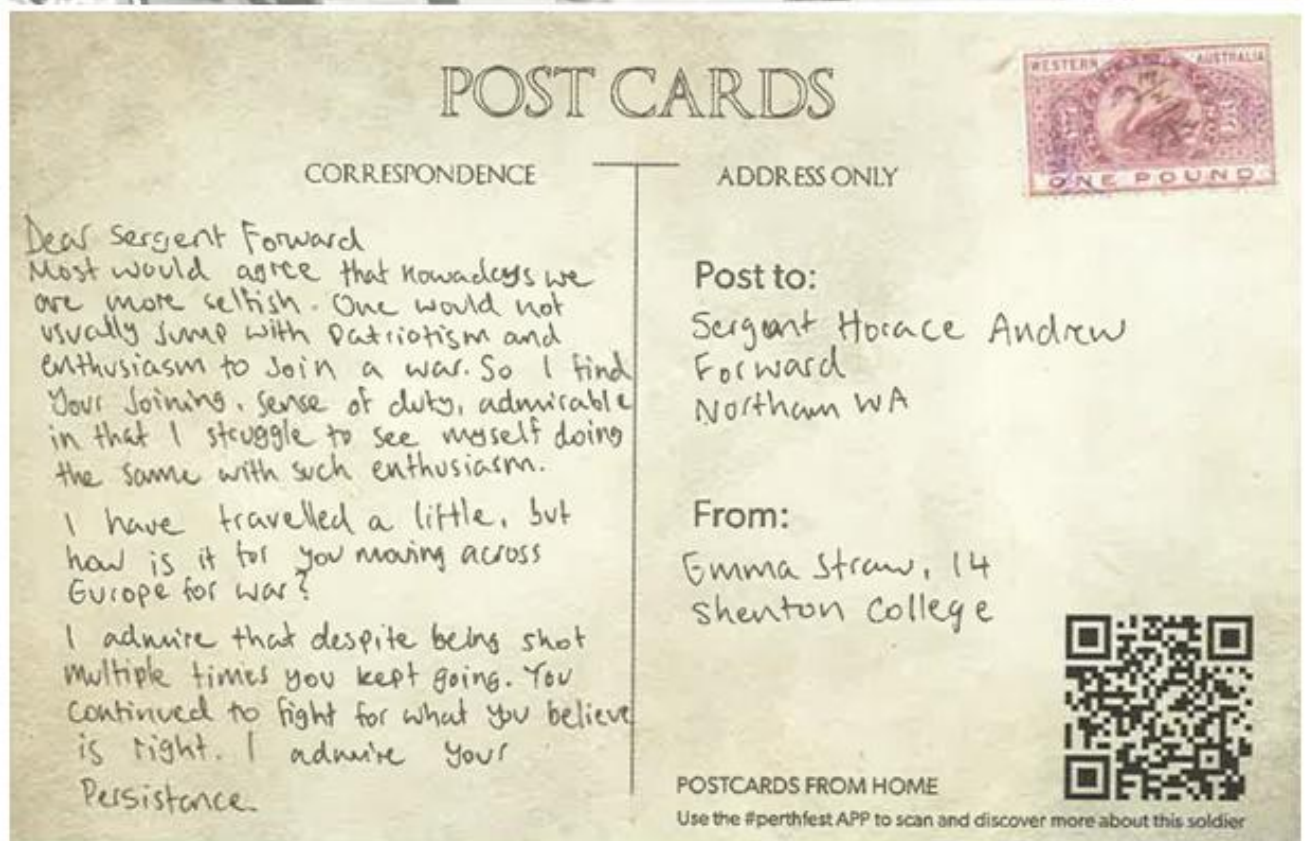 POST CARDS
WESTERN AUSTRALIA
ONE POUND
CORRESPONDENCE
ADDRESS ONLY
Dear Sergent Forward
Most would agree that nowadays we
are more selfish. One would not
usually jump with patriotism and
enthusiasm to join a war. So I find
your joining, sense of duty, admirable
in that I struggle to see myself doing
the same with such enthusiasm.
I have travelled a little, but
how is it for you moving across
Europe for war?
I admire that despite being shot
multiple times you kept going. You
continued to fight for what you believe
is right. I admire your
Persistance.
Post to:
Sergeant Horace Andrew
Forward
Northam WA
From:
Emma Straw, 14
Shenton College
POSTCARDS FROM HOME
Use the #perthfest APP to scan and discover more about this soldier